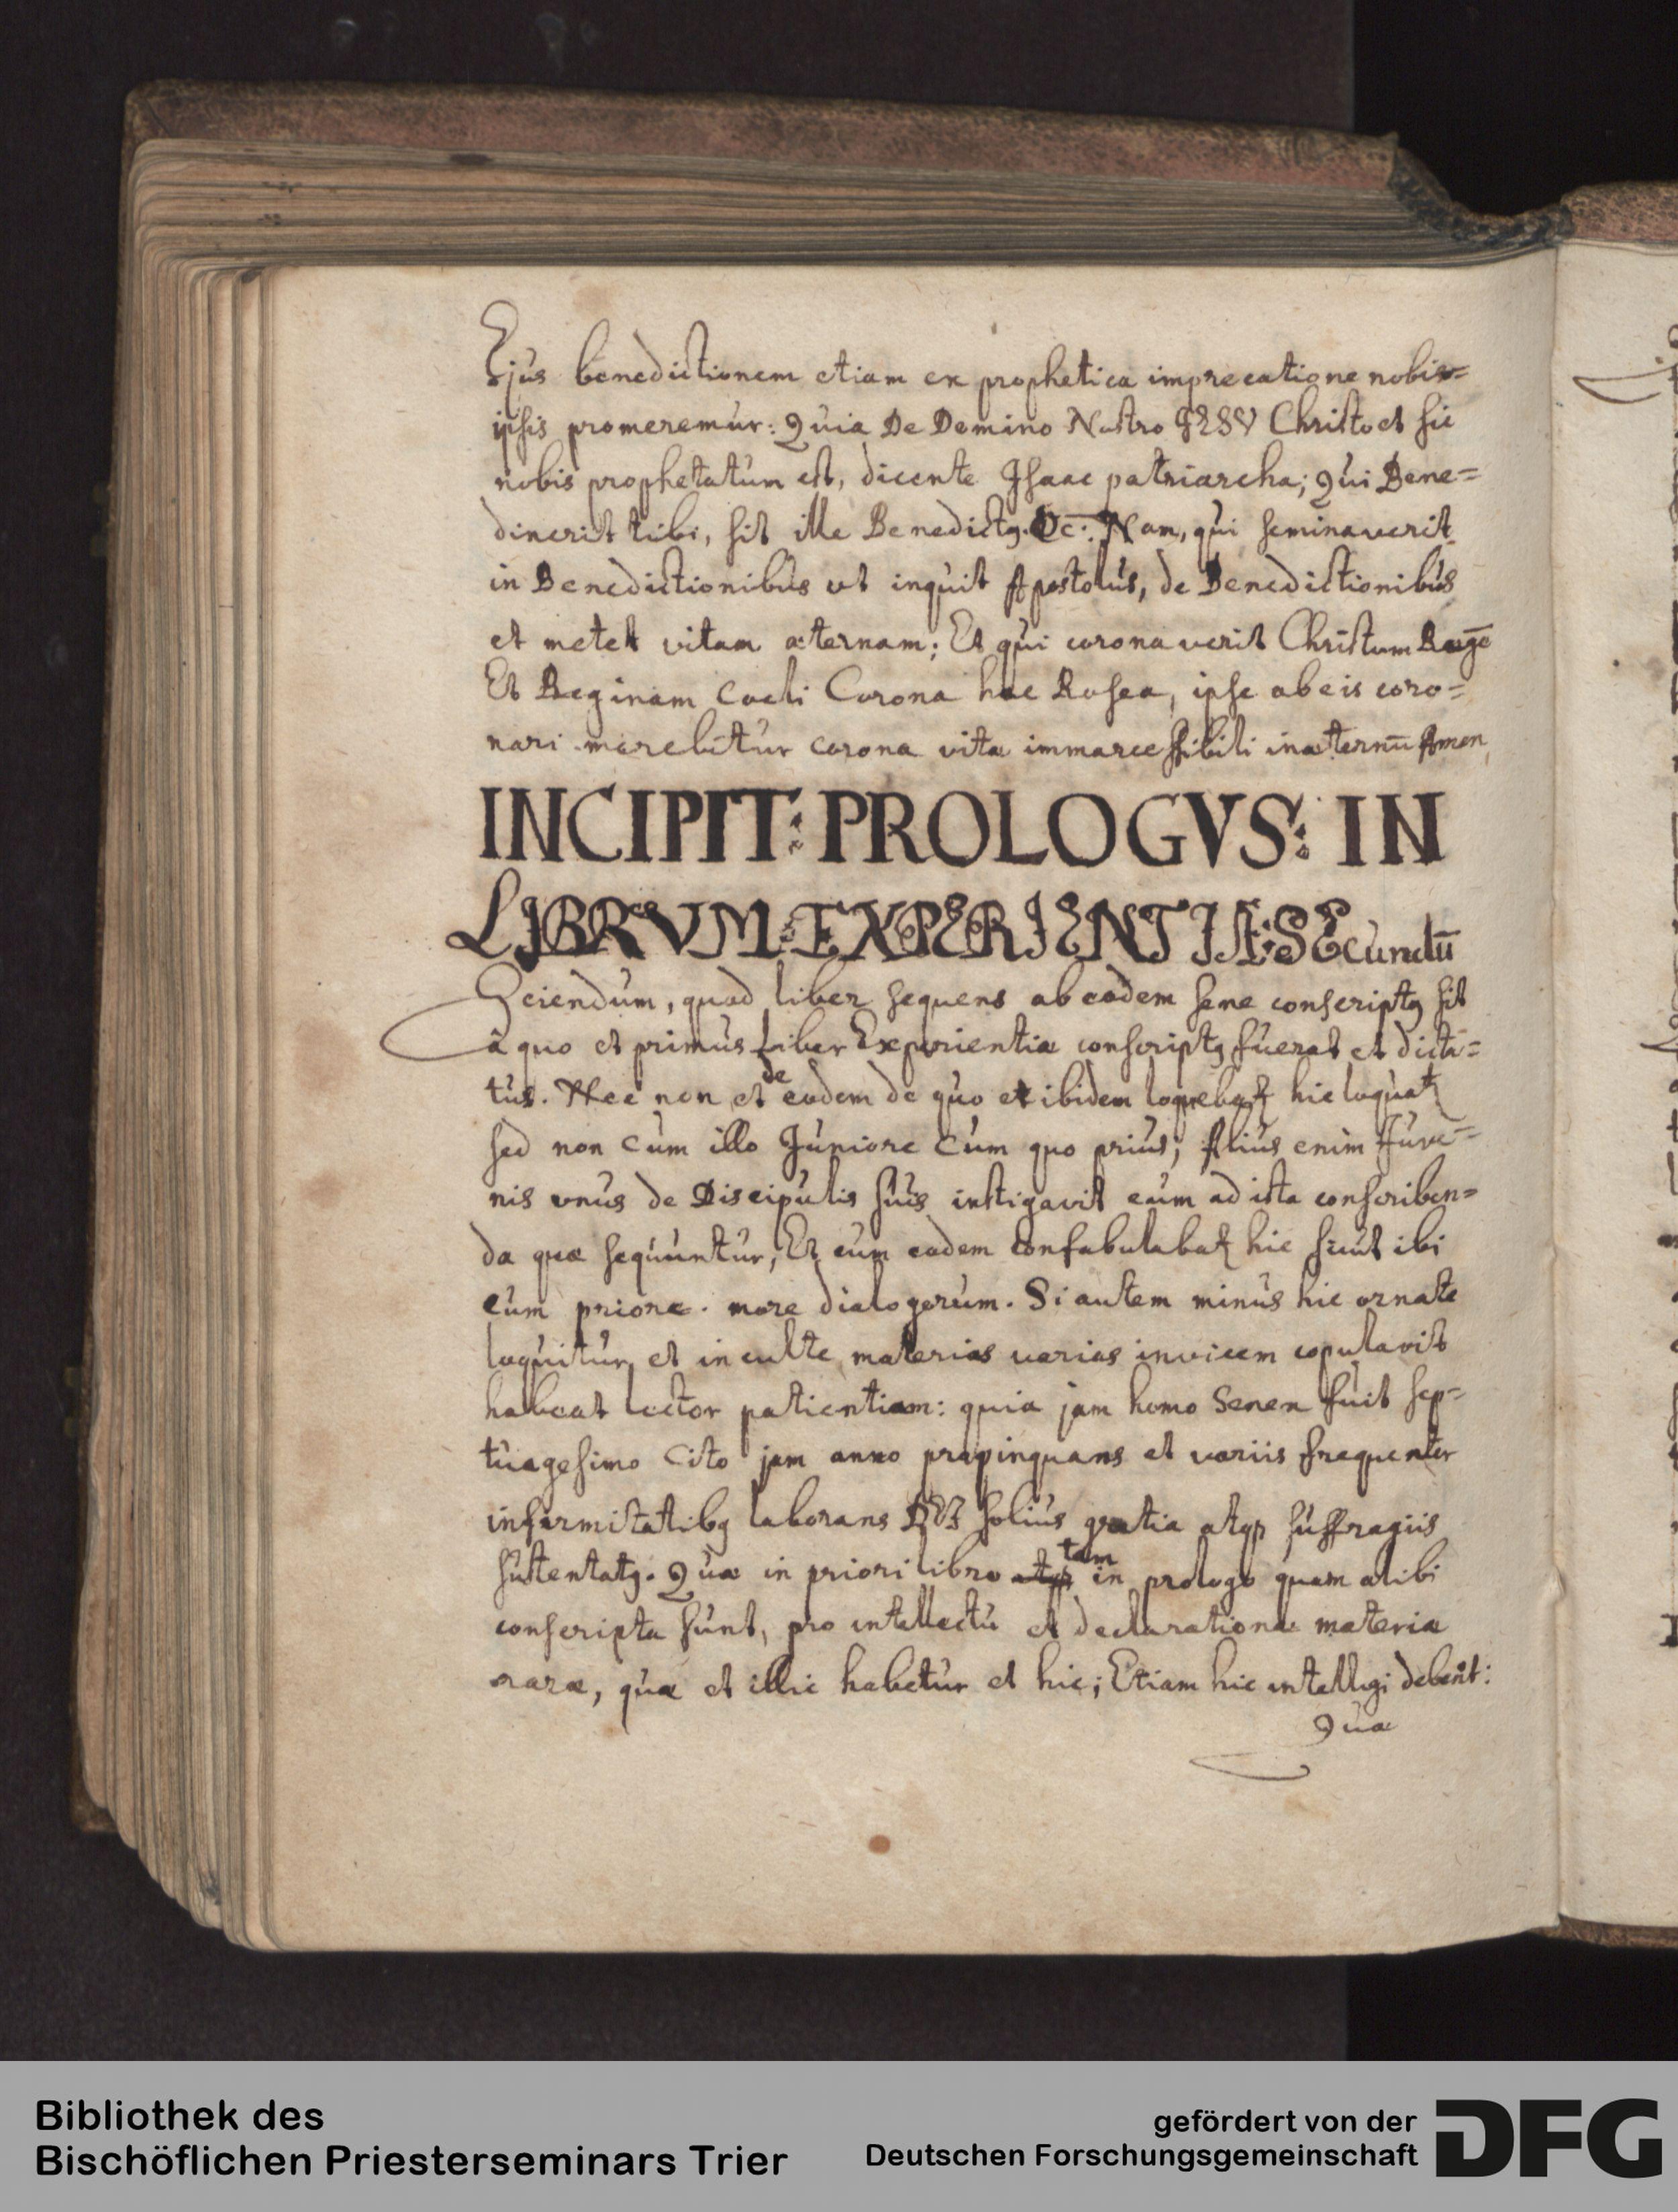 Ejus benedictionem etiam ex prophetica imprecatione nobis=
ipsis promeremur: Quia De Domino Nostro JESV Christo et sic
nobis prophetatum est, dicente Isaac patriarcha; Qui Bene=
dixerit tibi, sit ille Benedictꝯ. &c: Nam, qui seminaverit
in Benedictionibus vt inquit Apostolus, de Benedictionibus
et metet vitam æternam; Et qui coronaverit Christum Regē
Et Reginam Coeli Corona hac Rosea, ipse ab eis coro=
nari merebitur corona vitæ immarcessibili in æternū Amen,
INCIPIT: PROLOGVS: IN
LIBRVM: EXPERIENTIÆ: SEcundū
Sciendum, quod liber sequens ab eodem sene conscriptꝯ sit
à quo et primus Liber Experientiæ conscriptꝯ fuerat et dicta=
tus. Nec non et de eodem de quo et ibidem loquebatꝛ hic loquatꝛ
sed non cum illo Juniore cum quo prius; Alius enim Juve=
nis vnus de Discipulis suis instigavit eum ad ista conscriben=
da quæ sequuntur, Et cum eodem confabulabatꝛ hic sicut ibi
cum priore. more dialogorum. Si autem minus hic ornate
loquitur, et inculte materias varias invicem copulavit
habeat lector patientiam: quia jam homo Senex fuit sep=
tuagesimo cito jam anno propinquans et variis frequenter
infirmitatibꝯ laborans DEI solius gratia atqꝫ suffragiis
sustentatꝯ. Quæ in priori libro atqꝫ tam in prologo quam alibi
conscripta sunt, pro intellectu et declaratione materiæ
raræ, quæ et illic habetur et hic; Etiam hic intelligi debent:
Quæ
Bibliothek des
Bischöflichen Priesterseminars Trier
gefördert von der
Deutschen Forschungsgemeinschaft
DFG